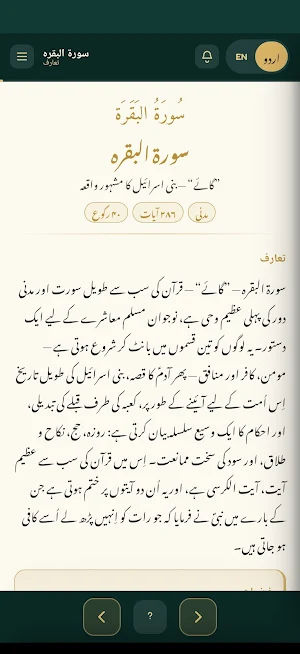 سورۃ البقرہ
تعارف
EN
اردو
سُورَةُ البَقَرَة
سورۃ البقرہ
”گائے“ — بنی اسرائیل کا مشہور واقعہ
مدنی
۲۸۶ آیات
۴۰ رکوع
تعارف
سورۃ البقرہ — ”گائے“ — قرآن کی سب سے طویل سورت اور مدنی
دور کی پہلی عظیم وحی ہے، نوجوان مسلم معاشرے کے لیے ایک
دستور۔ یہ لوگوں کو تین قسموں میں بانٹ کر شروع ہوتی ہے —
مومن، کافر اور منافق — پھر آدمؑ کا قصہ، بنی اسرائیل کی طویل تاریخ
اِس اُمت کے لیے آئینے کے طور پر، کعبہ کی طرف قبلے کی تبدیلی،
اور احکام کا ایک وسیع سلسلہ بیان کرتی ہے: روزہ، حج، نکاح و
طلاق، اور سود کی سخت ممانعت۔ اِس میں قرآن کی سب سے عظیم
آیت، آیت الکرسی ہے، اور یہ اُن دو آیتوں پر ختم ہوتی ہے جن
کے بارے میں نبیؐ نے فرمایا کہ جو رات کو اِنہیں پڑھ لے اُسے کافی
ہو جاتی ہیں۔
?